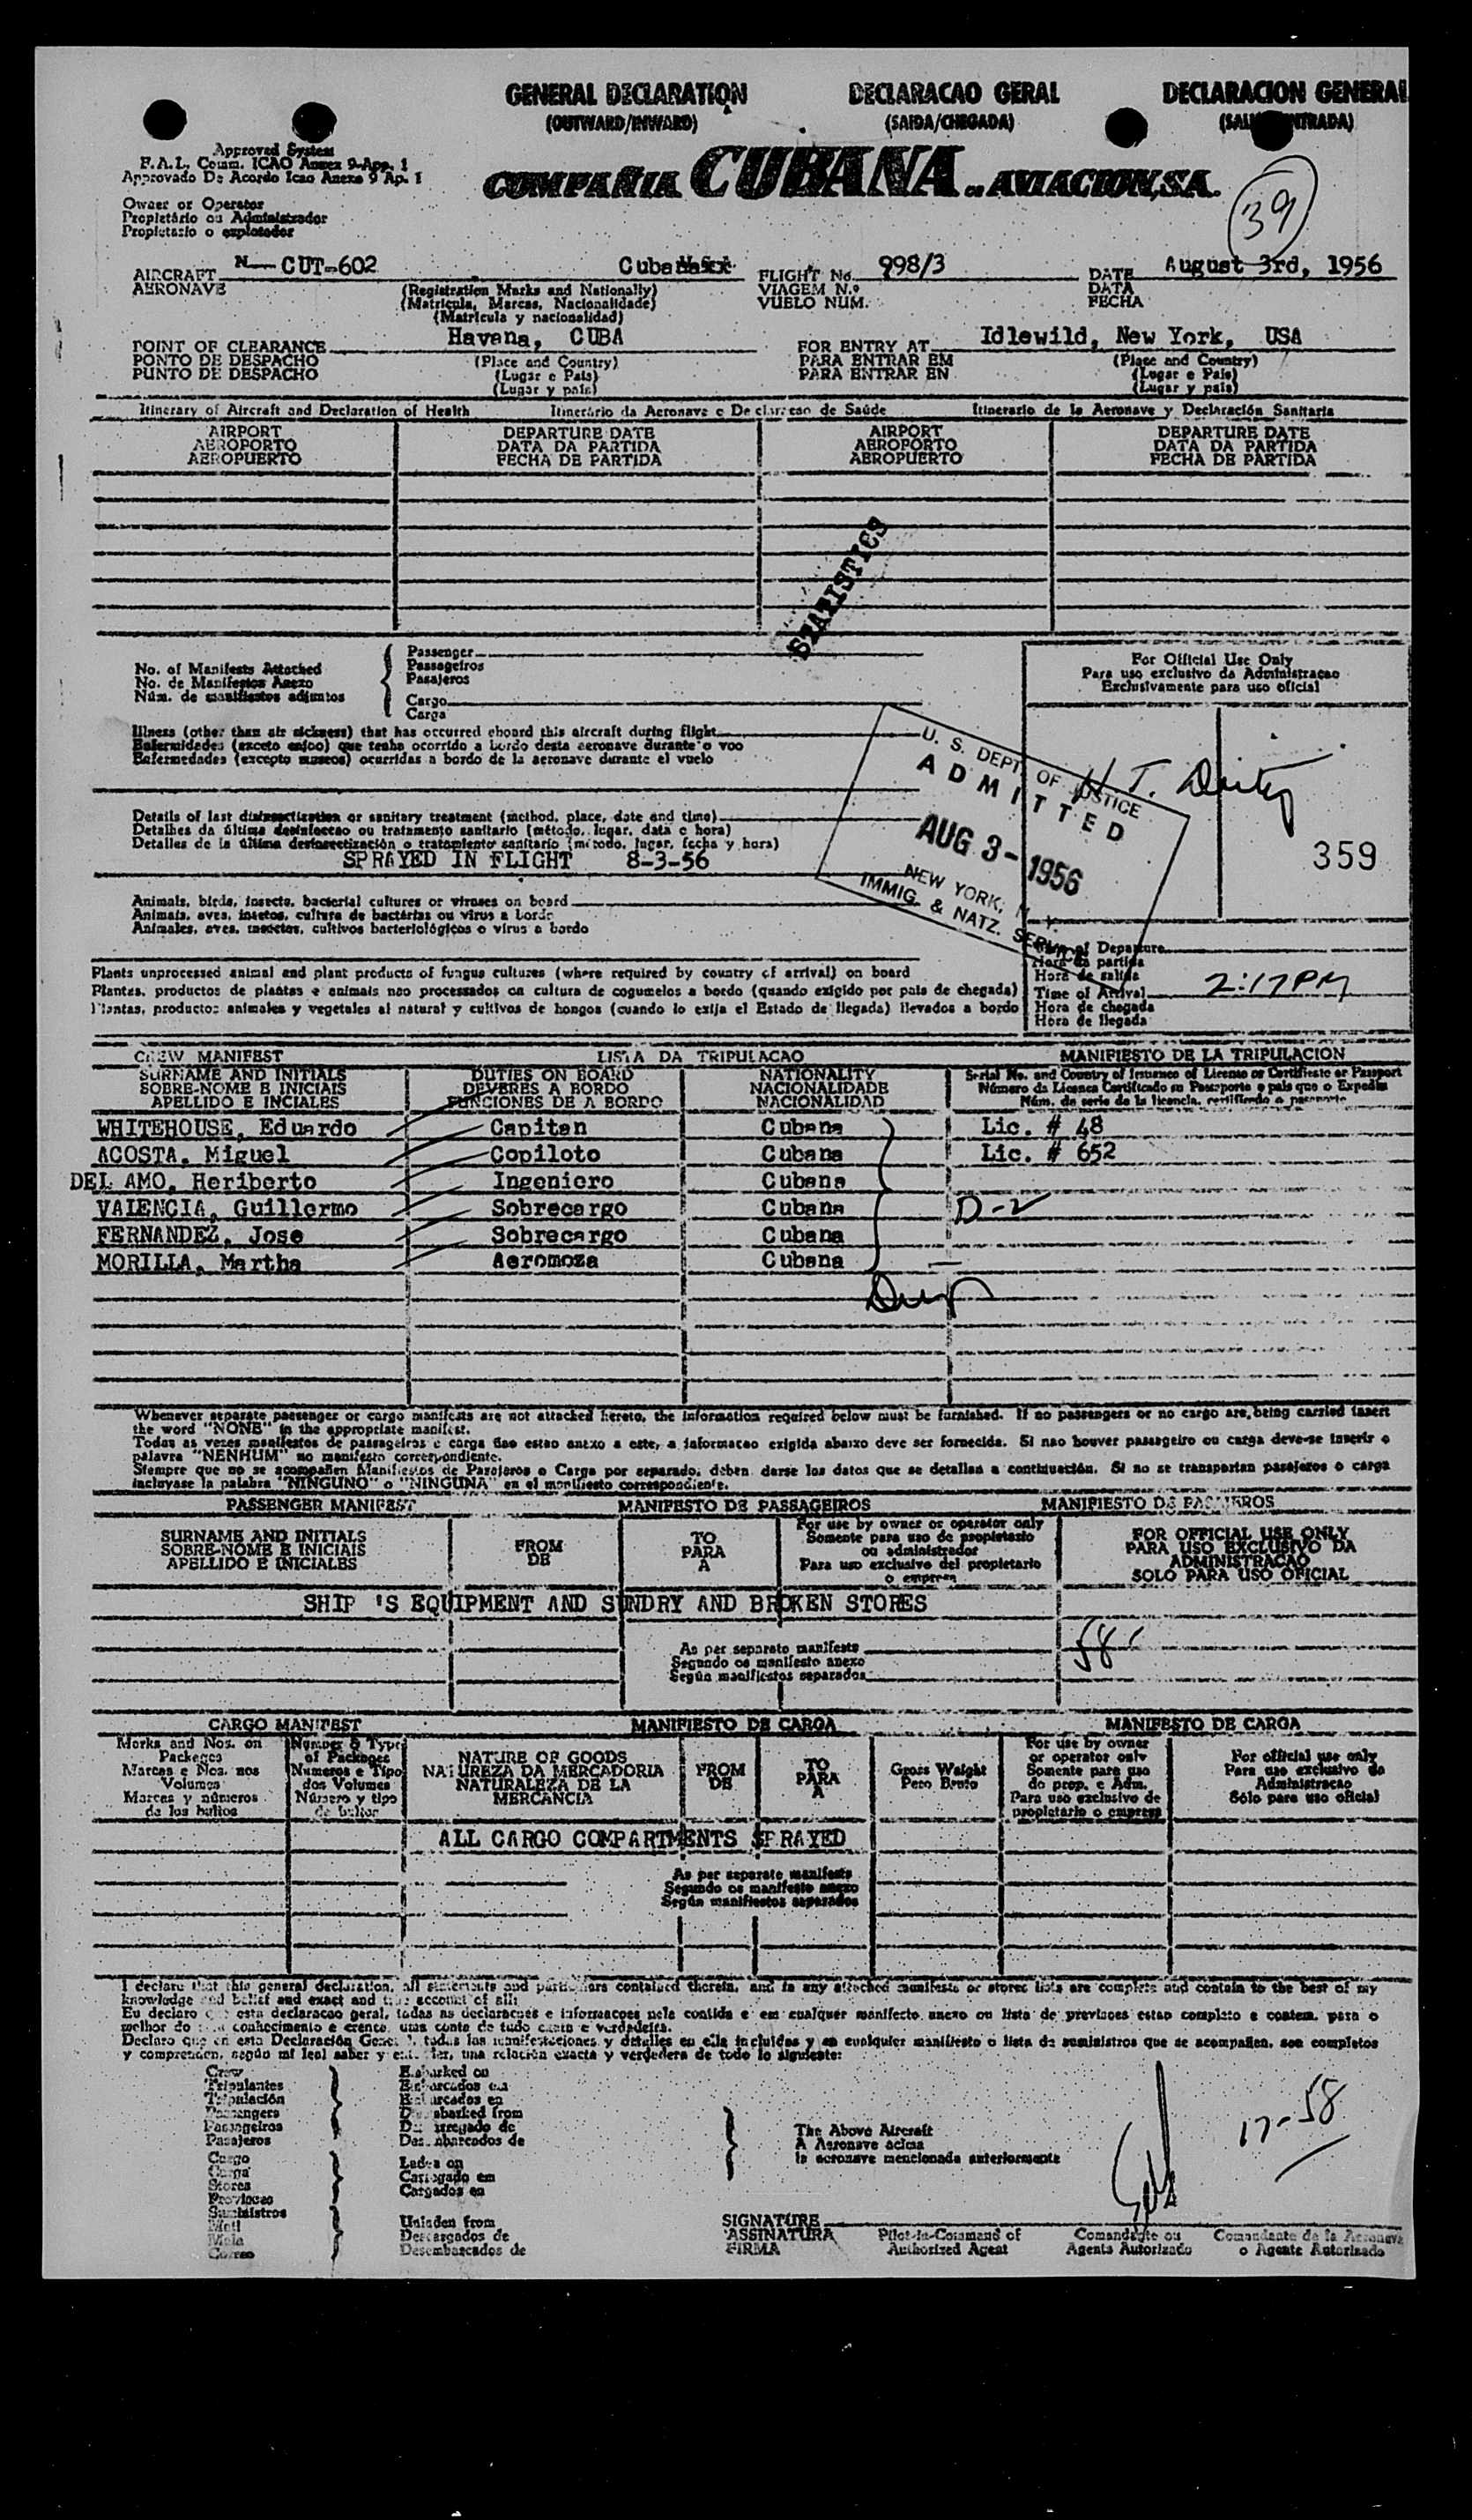 GENERAL DECLARATION DECLARACAO GERAL DECLARACION GENERAL
(OUTWARD/INWARD) (SAIDA/CHEGADA)
Approved System
F.A.L. Comm. ICAO Annex 9-App. 1
Approvado De Acordo Icao Anexo 9 Ap. 1
COMPAÑIA CUBANA DE AVIACION, S.A.
39
Owner or Operator
Propietário ou Administrador
Propietario o explotador
AIRCRAFT N- CUT-602 Cubana FLIGHT No. 998/3 DATE August 3rd, 1956
AERONAVE (Registration Marks and Nationally) VIAGEM N.º DATA
(Matricula, Marcas, Nacionalidade) VUELO NUM. FECHA
(Matricula y nacionalidad)
POINT OF CLEARANCE Havana, CUBA FOR ENTRY AT Idlewild, New York, USA
PONTO DE DESPACHO (Place and Country) PARA ENTRAR EM (Place and Country)
PUNTO DE DESPACHO (Lugar e Pais) PARA ENTRAR EN (Lugar e Pais)
(Lugar y pais) (Lugar y pais)
Itinerary of Aircraft and Declaration of Health Itinerário da Aeronave e Declaracao de Saúde Itinerario de la Aeronave y Declaración Sanitaria
AIRPORT DEPARTURE DATE AIRPORT DEPARTURE DATE
AEROPORTO DATA DA PARTIDA AEROPORTO DATA DA PARTIDA
AEROPUERTO FECHA DE PARTIDA AEROPUERTO FECHA DE PARTIDA
STATISTICS
No. of Manifests Attached Passenger
No. de Manifestos Anexo Passageiros
Núm. de manifiestos adjuntos Pasajeros
Cargo
Carga
For Official Use Only
Para uso exclusivo da Administracao
Exclusivamente para uso oficial
Illness (other than air sickness) that has occurred aboard this aircraft during flight
Enfermidades (exceto enjoo) que tenha ocorrido a bordo desta aeronave durante o voo
Enfermedades (excepto mareos) ocurridas a bordo de la aeronave durante el vuelo
U. S. DEPT. OF JUSTICE
ADMITTED
AUG 3-1956
NEW YORK, N. Y.
IMMIG. & NATZ. SERV.
359
Details of last disinsectization or sanitary treatment (method, place, date and time)
Detalhes da última desinfeccao ou tratamento sanitario (método, lugar, data e hora)
Detalles de la última desinsectización o tratamiento sanitario (método, lugar, fecha y hora)
SPRAYED IN FLIGHT 8-3-56
Animals, birds, insects, bacterial cultures or viruses on board
Animais, aves, insetos, cultura de bactérias ou virus a bordo
Animales, aves, insectos, cultivos bacteriológicos o virus a bordo
Plants unprocessed animal and plant products of fungus cultures (where required by country of arrival) on board
Plantas, productos de plantas e animais nao processados ou cultura de cogumelos a bordo (quando exigido por pais de chegada)
Plantas, productos animales y vegetales al natural y cultivos de hongos (cuando lo exija el Estado de llegada) llevados a bordo
Time of Departure
Hora da partida
Hora de salida
Time of Arrival 2:17PM
Hora de chegada
Hora de llegada
CREW MANIFEST LISTA DA TRIPULACAO MANIFIESTO DE LA TRIPULACION
SURNAME AND INITIALS DUTIES ON BOARD NATIONALITY Serial No. and Country of Issuance of License or Certificate or Passport
SOBRE-NOME E INICIAIS DEVERES A BORDO NACIONALIDADE Número da Licenca Certificado ou Passaporte e pais que o Expediu
APELLIDO E INCIALES FUNCIONES DE A BORDO NACIONALIDAD Núm. de serie de la licencia, certificado o pasaporte
WHITEHOUSE, Eduardo Capitan Cubana Lic. # 48
ACOSTA, Miguel Copiloto Cubana Lic. # 652
DEL AMO, Heriberto Ingeniero Cubana
VALENCIA, Guillermo Sobrecargo Cubana D-2
FERNANDEZ, Jose Sobrecargo Cubana
MORILLA, Martha Aeromoza Cubana
Whenever separate passenger or cargo manifests are not attached hereto, the information required below must be furnished. If no passengers or no cargo are being carried insert
the word "NONE" in the appropriate manifest.
Todas as vezes manifestos de passageiros e carga nao estao anexo a este, a informacao exigida abaixo deve ser fornecida. Si nao houver passageiro ou carga deve-se inserir a
palavra "NENHUM" no manifesto correspondiente.
Siempre que no se acompañen Manifiestos de Pasajeros o Carga por separado, deben darse los datos que se detallan a continuación. Si no se transportan pasajeros o carga
incluyase la palabra "NINGUNO" o "NINGUNA" en el manifiesto correspondiente.
PASSENGER MANIFEST MANIFESTO DE PASSAGEIROS MANIFIESTO DE PASAJEROS
SURNAME AND INITIALS FROM TO For use by owner or operator only FOR OFFICIAL USE ONLY
SOBRE-NOME E INICIAIS DE PARA Somente para uso de propietario PARA USO EXCLUSIVO DA
APELLIDO E INICIALES A ou administrador ADMINISTRACAO
Para uso exclusivo del propietario SOLO PARA USO OFICIAL
o empresa
SHIP 'S EQUIPMENT AND SUNDRY AND BROKEN STORES
As per separate manifests 58
Segundo os manifesto anexo
Según manifiestos separados
CARGO MANIFEST MANIFIESTO DE CARGA MANIFESTO DE CARGA
Marks and Nos. on Packeges
Marcas e Nos. nos Volumes
Marcas y números de los bultos
Number & Type of Packages
Numeros e Tipo dos Volumes
Número y tipo de bultos
NATURE OF GOODS
NATUREZA DA MERCADORIA
NATURALEZA DE LA MERCANCIA
FROM DE
TO PARA A
Gross Weight
Peso Bruto
For use by owner or operator only
Somente para uso do prop. e Adm.
Para uso exclusivo de propietario o empresa
For official use only
Para uso exclusivo da Administracao
Sólo para uso oficial
ALL CARGO COMPARTMENTS SPRAYED
As per separate manifests
Segundo os manifesto anexo
Según manifiestos separados
I declare that this general declaration, all statements and particulars contained therein, and in any attached manifests or stores lists are complete and contain to the best of my
knowledge and belief and exact and true account of all:
Eu declaro que esta declaracao geral, todas as declaracoes e informacoes nela contida e em cualquer manifecto anexo ou lista de previsoes estao completo e contem, para o
melhor do conhecimento e crenca, uma conta de tudo certo e verdadeira.
Declaro que en esta Declaración General, todas las manifestaciones y detalles en ella incluidas y en cualquier manifiesto o lista de suministros que se acompañen, son completos
y comprenden, según mi leal saber y entender, una relación exacta y verdadera de todo lo siguiente:
Crew Embarked on
Tripulantes Embarcados em
Tripulación Embarcados en
Passengers Disembarked from
Passageiros Desembarcados de
Pasajeros
The Above Aircraft
A Aeronave acima
la aeronave mencionada anteriormente
17-58
Cargo Laden on
Carga Carregado em
Stores Cargados en
Provisoes
Suministros
Mail Unladen from
Mala Descargados de
Correo Desembarcados de
SIGNATURE
ASSINATURA Pilot-in-Command of Comandante ou Comandante de la Aeronave
FIRMA Authorized Agent Agente Autorizado o Agente Autorizado